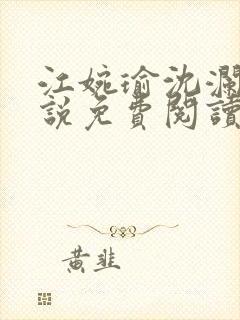 江婉瑜沈瀾
說免費閱讀
黃韭